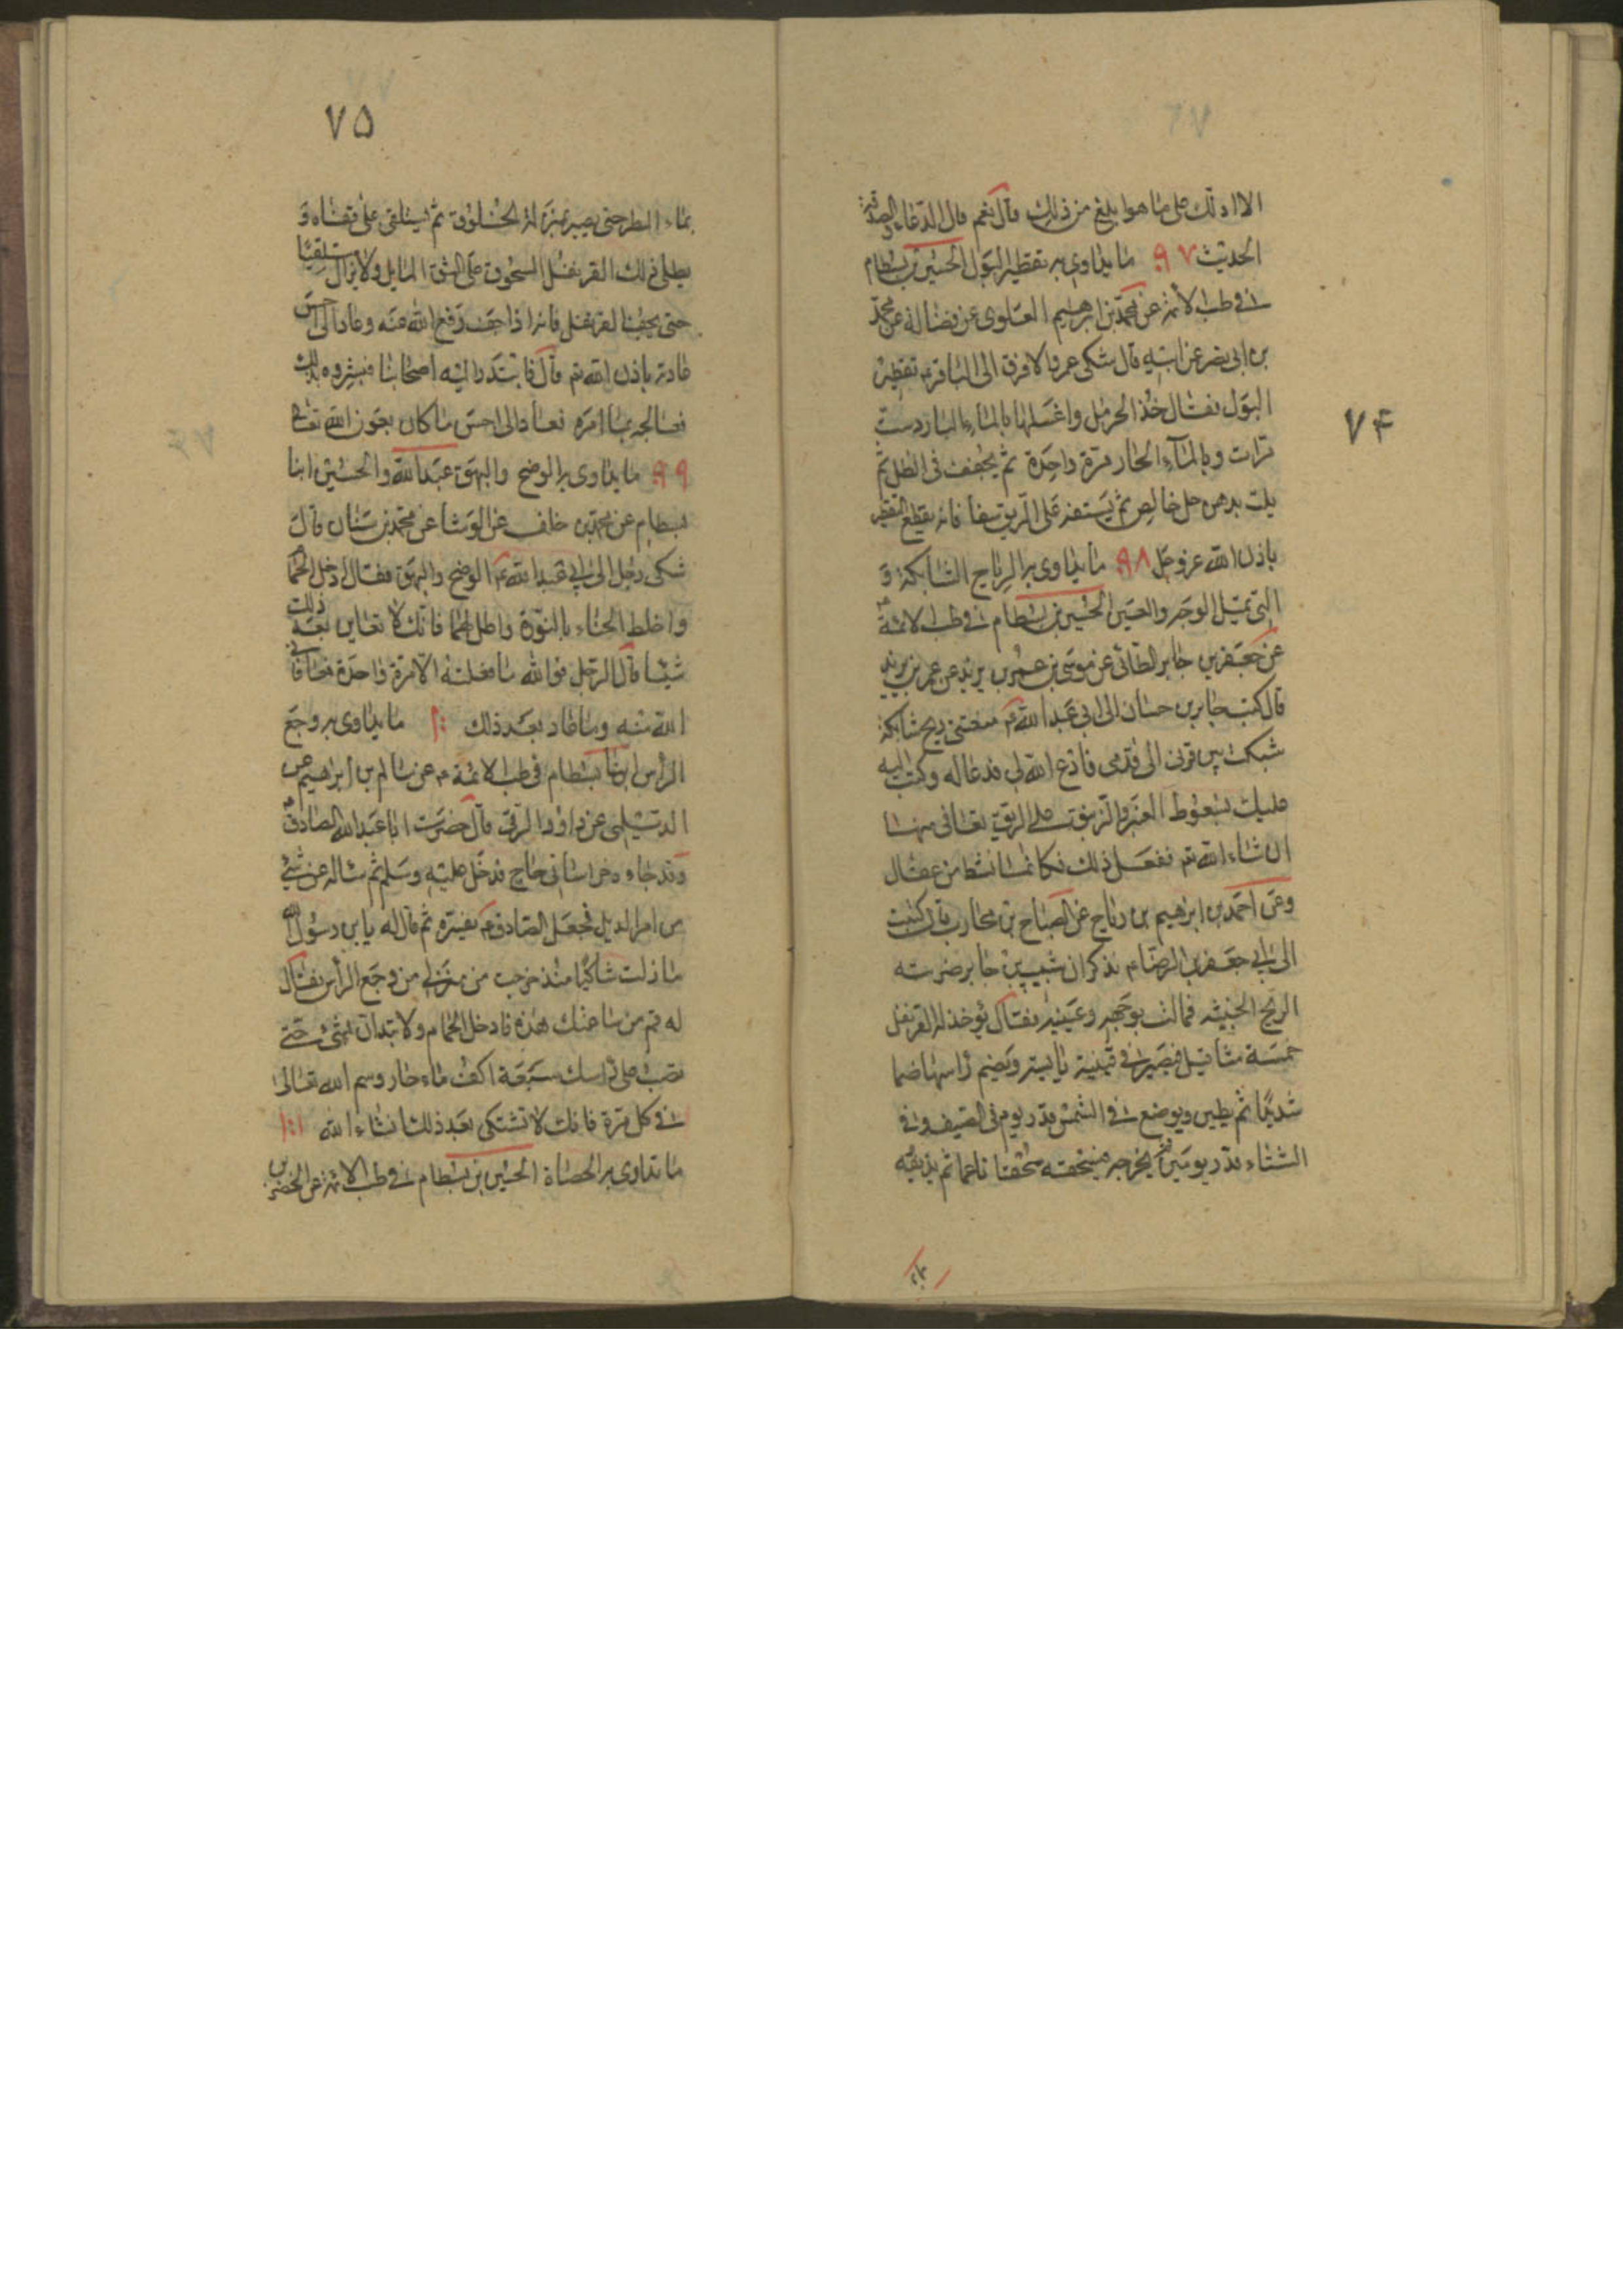 ٧۴
الا ادلك على ما هو ابلغ من ذلك قال نعم قال الدعاء والصدقة
الحديث ٩٧ ما يداوى به تقطير البول الحسين بن بسطام
في طب الائمة عن محمد بن ابرهيم العلوى عن فضالة عن محمد
بن ابى نصر عن ابيه قال شكى عمرو الافرق الى الباقر ع تقطير
البول فقال خذ الحرمل واغسلها بالماء البارد ست
مرات وبالماء الحار مرة واحدة ثم يجفف فى الظل ثم
يلت بدهن حل خالص ثم يستف على الريق سفا فانه يقطع التقطير
باذن الله عز وجل ٩٨ ما يداوى به الرياح الشابكة و
التى تميل الوجه والعين الحسين بن بسطام في طب الائمة ع
عن جعفر بن جابر الطائى عن موسى بن عمر بن يزيد عن عمر بن يزيد
قال كتب جابر بن حسان الى ابى عبد الله ع منعتنى ريح شابكة
شبكت بين قرنى الى قدمى فادع الله لى فدعا له وكتب اليه
عليك بسعوط العنبر والزنبق على الريق تعافى منها
ان شاء الله تع ففعل ذلك فكانما نشط من عقال
وعن احمد بن ابراهيم بن رياح عن الصباح بن محارب قال كنت
الى ابي جعفر بن الرضا ع فذكر ان شبيب بن جابر ضربته
الريح الخبيثه فمالت بوجهه وعينيه فقال يؤخذ له القرنفل
خمسة مثاقيل فيصير في قنينة يابسة ويضم راسها ضما
شديدا ثم يطين ويوضع في الشمس قدر يوم فى الصيف وفي
الشتاء قدر يومين ثم يخرجه فيسحقه سحقا ناعما ثم يذيفه
بماء
٧۵
بماء المطر حتى يصير بمنزلة الخلوق ثم يستلقى على قفاه و
يطلى ذلك القرنفل المسحوق على الشق المايل ولا يزال مستلقيا
حتى يجف القرنفل فانه اذا جف رفع الله عنه وعاد الى احسن
عادته باذن الله تع قال فابتدر اليه اصحابنا فبشروه بذلك
فعالجه بما امره فعاد الى احسن ما كان بعون الله تعالى
٩٩ ما يداوى به الوضح والبهق عبد الله والحسين ابنا
بسطام عن محمد بن خلف عن الوشا عن محمد بن سنان قال
شكى رجل الى ابي عبد الله ع الوضح والبهق فقال ادخل الحما
واخلط الحناء بالنورة واطل بهما فانك لا تعاين بعد ذلك
شيئا قال الرجل فوالله ما فعلته الا مرة واحدة فعافانى
الله منه وما عاد بعد ذلك ١٠٠ ما يداوى به وجع
الراس ابنا بسطام فى طب الائمة ع عن سالم بن ابراهيم عن
الديلمى عن داوود الرقى قال حضرت ابا عبد الله الصادق ع
وقد جاء خراسانى حاج فدخل عليه وسلم ثم ساله عن شئ
من امر الدين فجعل الصادق ع يفسره ثم قال له يا بن رسول الله
ما زلت شاكيا منذ خرجت من منزلى من وجع الراس فقال
له قم من ساعتك هذه فادخل الحمام ولا تبتدان بشئ حتى
تصب على راسك سبعة اكف ماء حار وسم الله تعالى
في كل مرة فانك لا تشتكى بعد ذلك انشاء الله ١٠١
ما تداوى به الحصاة الحسين بن بسطام في طب الائمة عن الخضر بن